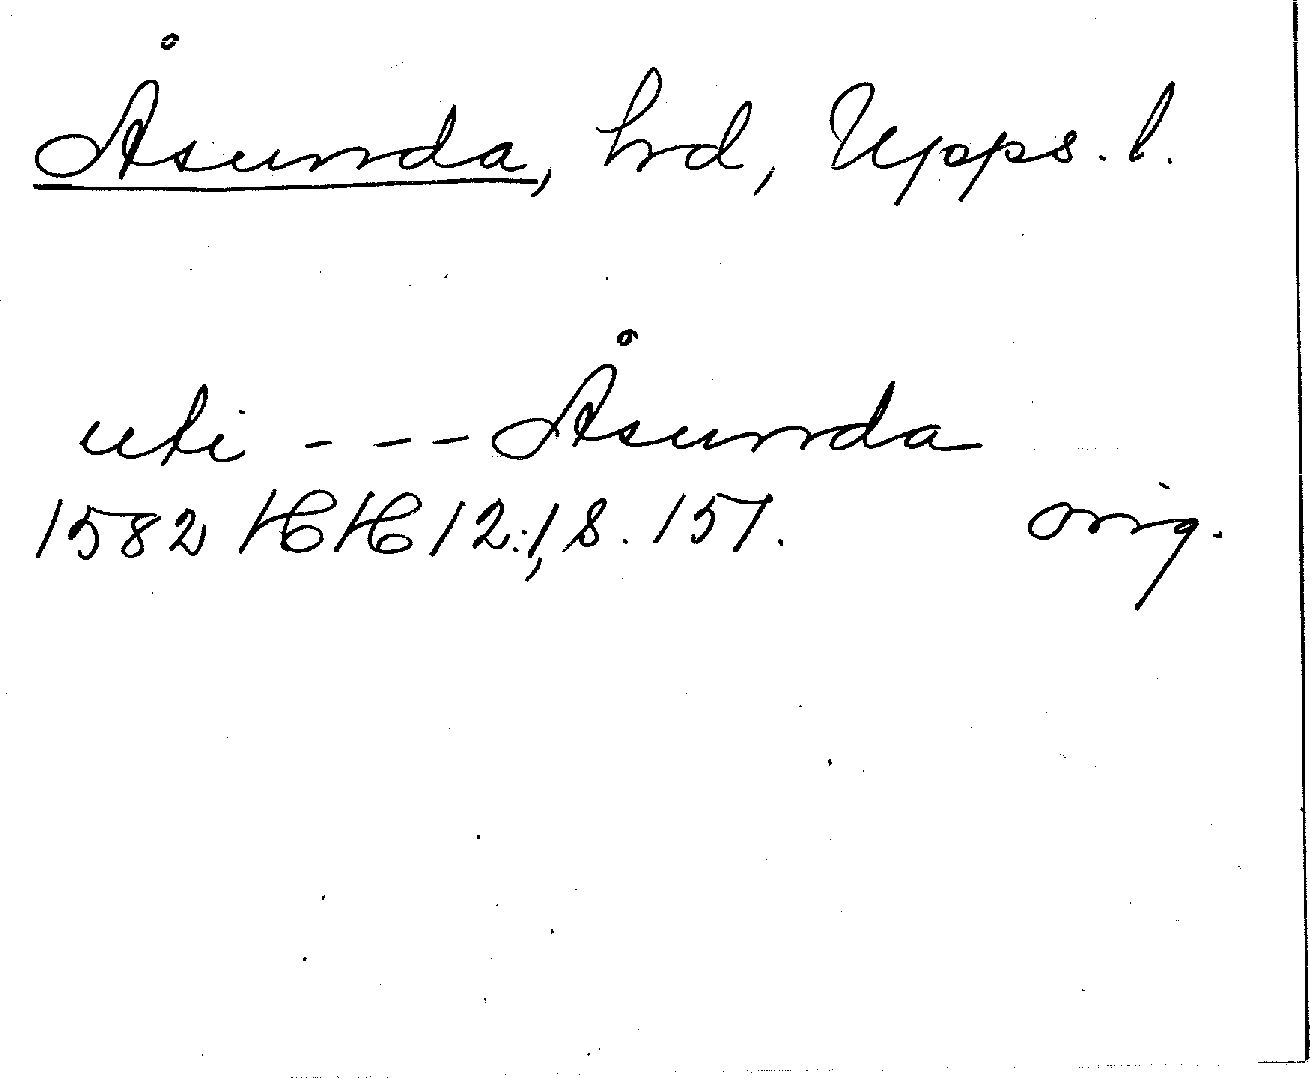 Åsunda, hrd, Upps. l.
uti - - - Åsunda
1582 HH 12:1, s. 157. orig.